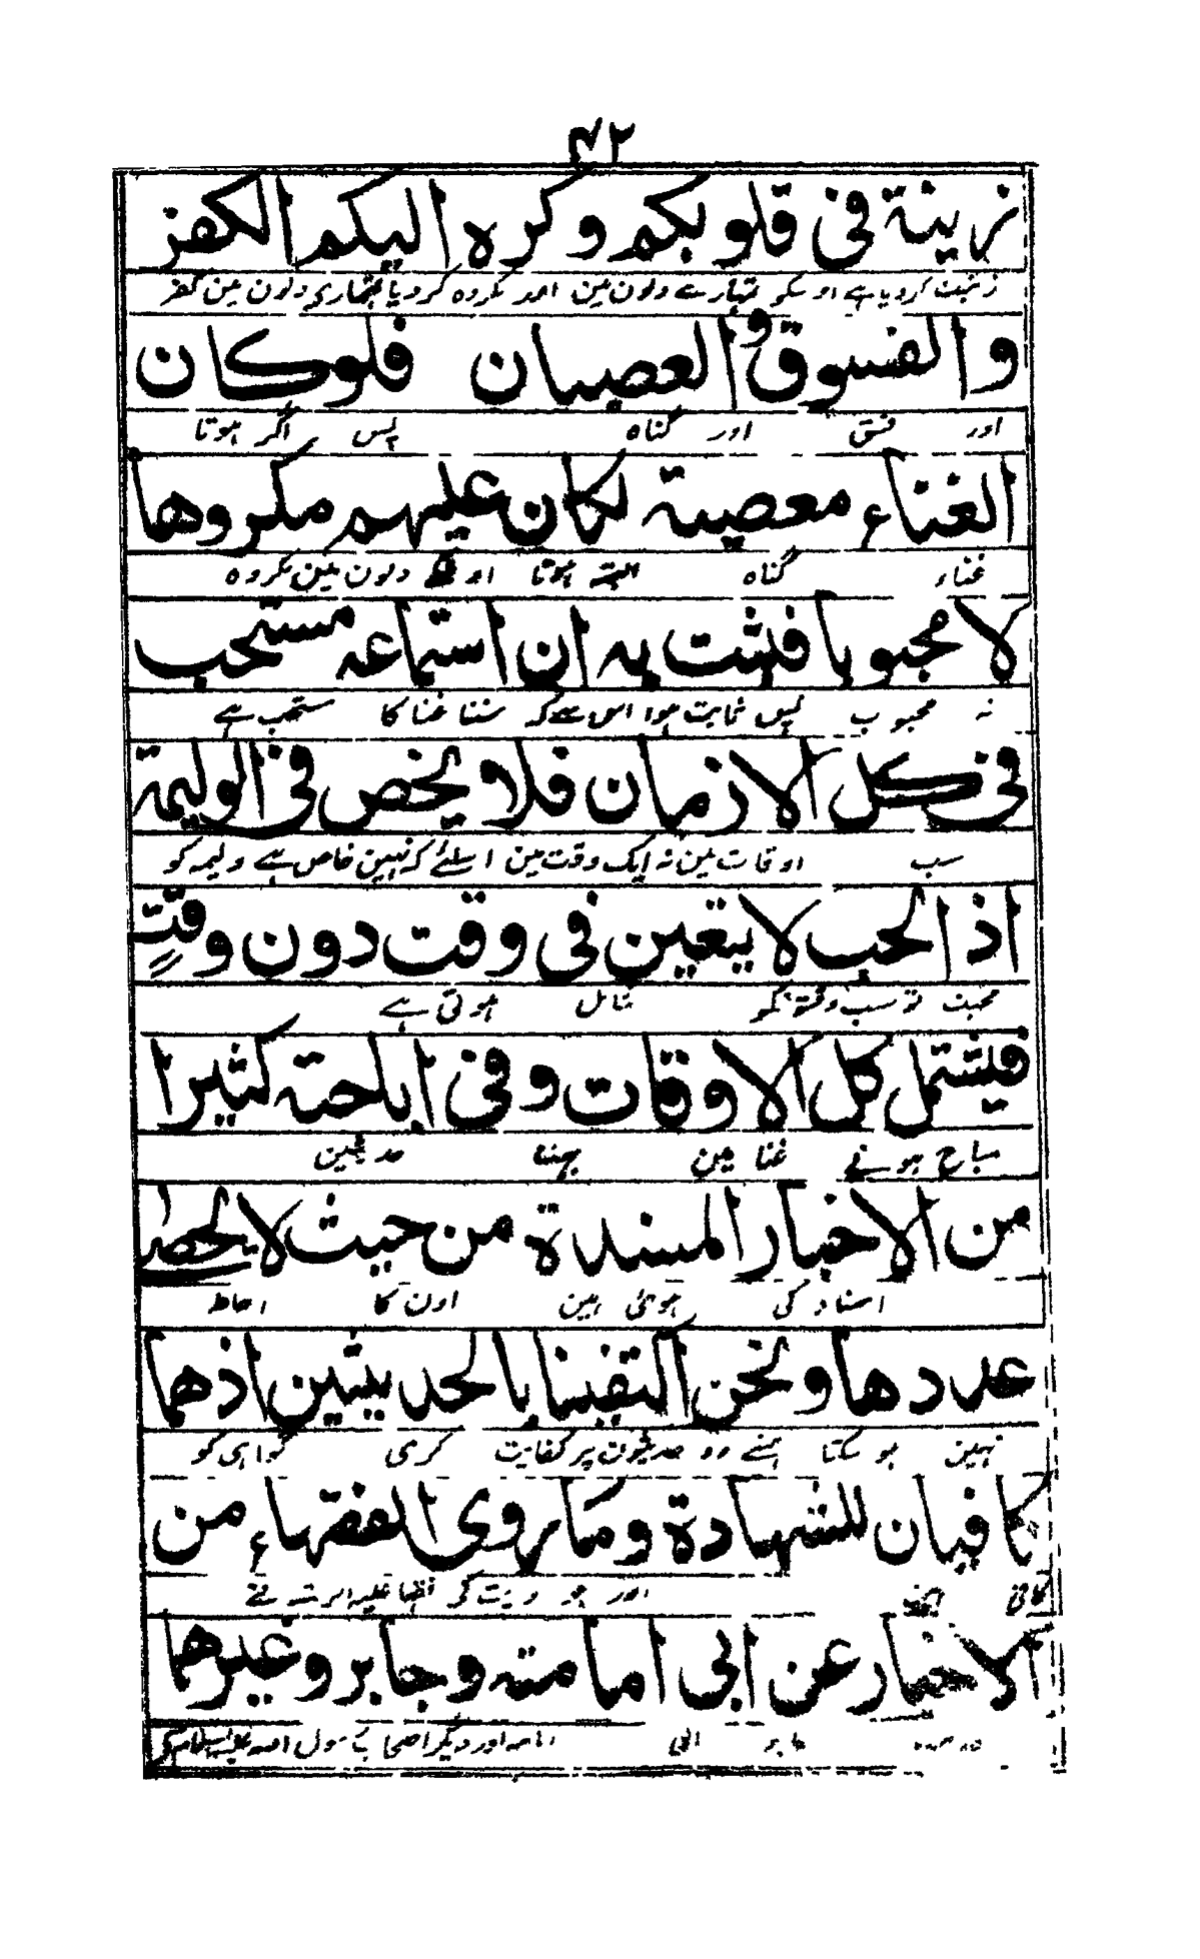 ۴۲
زينة فى قلوبكم وكره اليكم الكفر
زینت کردیا ہے اوسکو تمہارے دلون مین اور مکروہ کردیا تمہاری دلون مین کفر
والفسوق والعصيان فلوكان
اور فسق اور گناہ پس اگر ہوتا
الغناء معصية لكان عليهم مكروها
غناء گناہ البتہ ہوتا اور دلون مین مکروہ
لا محبوبا فثبت به ان استماعه مستحب
نہ محبوب پس ثابت ہوا اس سے کہ سننا غنا کا مستحب ہے
فى كل الازمان فلا يخص فى الوليمة
سب اوقات مین نہ ایک وقت مین اسلئے کہ نہین خاص ہے ولیمہ کو
اذ الحب لا يتعين فى وقت دون وقت
محبت تو سب وقتونکو شامل ہوتی ہے
فيشتمل كل الاوقات وفى اباحته كثيرا
مباح ہونے غنا مین بہت حدیثین
من الاخبار المسندة من حيث لا يحصى
اسناد کی ہوئی ہین اون کا احاطہ
عددها ونحن اكتفينا بالحديثين اذهما
نہین ہو سکتا ہمنے دو حدیثون پر کفایت کری گواہی کو
كافيان للشهادة وما روى الفقهاء من
کافی اور جو روایت کی فقہا علیہ الرحمہ نے
الاخبار عن ابى امامته وجابر وغيرهما
جابر ابی امامہ اور دیگر اصحاب رسول اللہ علیہ السلام کی